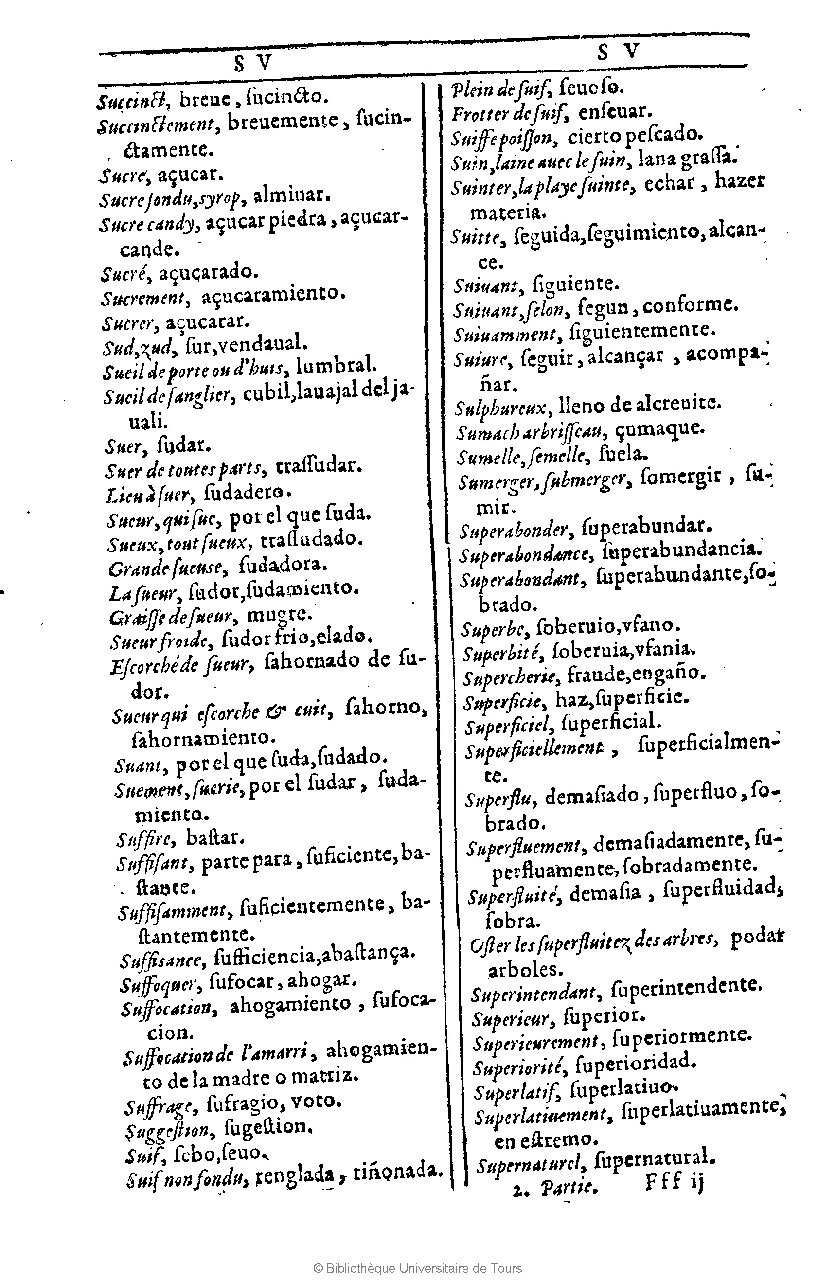 S V
Succinct, breue, ſucincto.
Succinctement, breuemente, ſucin-
ctamente.
Sucre, açucar.
Sucre fondu, syrop, almiuar.
Sucre candy, açucar piedra, açucar-
cande.
Sucré, açucarado.
Sucrement, açucaramiento.
Sucrer, açucarar.
Sud, zud, ſur, vendaual.
Sueil de porte ou d'huis, lumbral.
Sueil de ſanglier, cubil, lauajal del ja-
uali.
Suer, ſudar.
Suer de toutes parts, traſſudar.
Lieu à ſuer, ſudadero.
Sueur, qui ſue, por el que ſuda.
Sueux, tout ſueux, traſſudado.
Grande ſueuse, ſudadora.
La ſueur, ſudor, ſudamiento.
Graiſſe de ſueur, mugre.
Sueur froide, ſudor frio, elado.
Eſcorché de ſueur, ſahornado de ſu-
dor.
Sueur qui eſcorche & cuit, ſahorno,
ſahornamiento.
Suant, por el que ſuda, ſudado.
Suement, ſuerie, por el ſudar, ſuda-
miento.
Suffire, baſtar.
Suffiſant, parte para, ſuficiente, ba-
ſtante.
Suffiſamment, ſuficientemente, ba-
ſtantemente.
Suffisance, ſufficiencia, abaſtança.
Suffoquer, ſufocar, ahogar.
Suffocation, ahogamiento, ſufoca-
cion.
Suffocation de l'amarri, ahogamien-
to de la madre o matriz.
Suffrage, ſufragio, voto.
Suggeſtion, ſugeſtion.
Suif, ſebo, ſeuo.
Suif non fondu, renglada, riñonada.
S V
Plein de ſuif, ſeuoſo.
Frotter de ſuif, enſeuar.
Suiffe poiſſon, cierto peſcado.
Suin, laine auec le ſuin, lana graſſa.
Suinter, la playe ſuinte, echar, hazer
materia.
Suitte, ſeguida, ſeguimiento, alcan-
ce.
Suiuant, ſiguiente.
Suiuant, ſelon, ſegun, conforme.
Suiuamment, ſiguientemente.
Suiure, ſeguir, alcançar, acompa-
ñar.
Sulphureux, lleno de alcreuite.
Sumach arbriſſeau, çumaque.
Sumelle, ſemelle, ſuela.
Sumerger, ſubmerger, ſomergir, ſu-
mir.
Superabonder, ſuperabundar.
Superabondance, ſuperabundancia.
Superabondant, ſuperabundante, ſo-
brado.
Superbe, ſoberuio, vfano.
Superbité, ſoberuia, vfania.
Supercherie, fraude, engaño.
Superficie, haz, ſuperficie.
Superficiel, ſuperficial.
Superficiellement, ſuperficialmen-
te.
Superflu, demaſiado, ſuperfluo, ſo-
brado.
Superfluement, demaſiadamente, ſu-
perfluamente, ſobradamente.
Superfluité, demaſia, ſuperfluidad,
ſobra.
Oſter les ſuperfluitez des arbres, podar
arboles.
Superintendant, ſuperintendente.
Superieur, ſuperior.
Superieurement, ſuperiormente.
Superiorité, ſuperioridad.
Superlatif, ſuperlatiuo.
Superlatiuement, ſuperlatiuamente,
en eſtremo.
Supernaturel, ſupernatural.
2. Partie. Fff ij
© Bibliothèque Universitaire de Tours